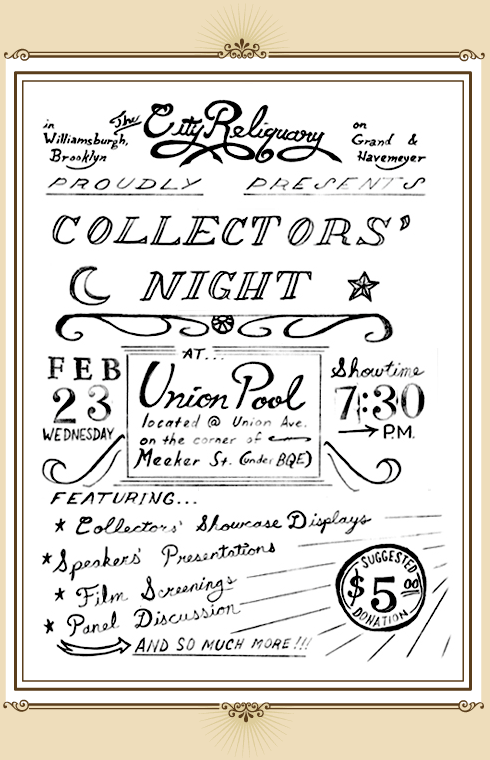 The City Reliquary
in
Williamsburgh,
Brooklyn
on
Grand &
Havemeyer
PROUDLY PRESENTS
COLLECTORS'
NIGHT
FEB
23
WEDNESDAY
AT...
Union Pool
located @ Union Ave.
on the corner of
Meeker St. (under BQE)
Showtime
7:30
P.M.
FEATURING...
Collectors' Showcase Displays
Speakers' Presentations
Film Screenings
Panel Discussion
AND SO MUCH MORE!!!
SUGGESTED
$5.00
DONATION